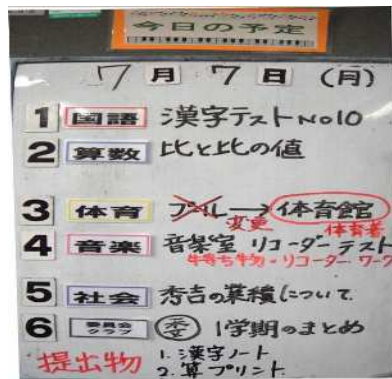 今日の予定
7月7日(月)
1 国語 漢字テストNo10
2 算数 比と比の値
3 体育 プール→体育館
変更 体育着
4 音楽 音楽室 リコーダーテスト
持ち物・リコーダー・ワーク
5 社会 秀吉の業績について
6 委員会クラブ 1学期のまとめ
提出物 1. 漢字ノート
2. 算プリント